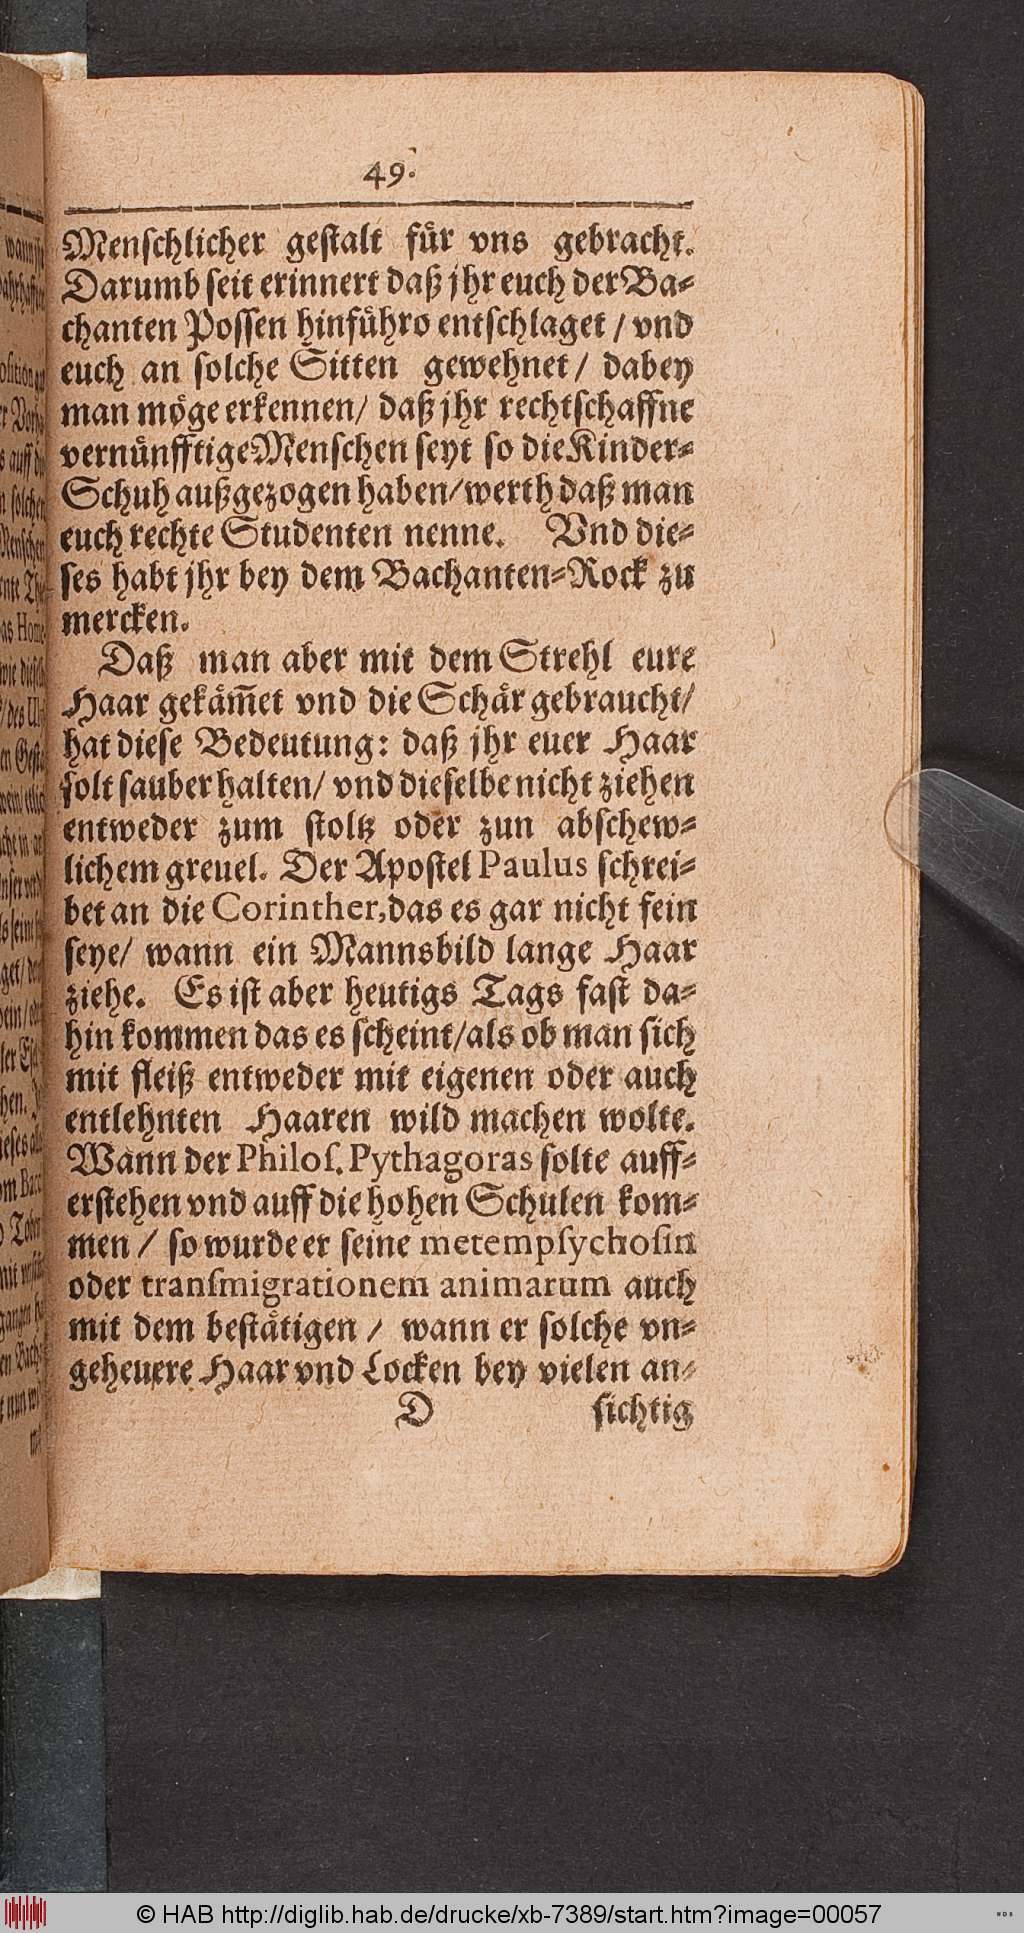 49.
Menschlicher gestalt für vns gebracht.
Darumb seit erinnert daß jhr euch der Ba-
chanten Possen hinführo entschlaget / vnd
euch an solche Sitten gewehnet / dabey
man möge erkennen / daß jhr rechtschaffne
vernünfftige Menschen seyt so die Kinder-
Schuh außgezogen haben / werth daß man
euch rechte Studenten nenne. Vnd die-
ses habt jhr bey dem Bachanten-Rock zu
mercken.
Daß man aber mit dem Strehl eure
Haar gekäm̅et vnd die Schär gebraucht /
hat diese Bedeutung: daß jhr euer Haar
solt sauber halten / vnd dieselbe nicht ziehen
entweder zum stoltz oder zun abschew-
lichem greuel. Der Apostel Paulus schrei-
bet an die Corinther, das es gar nicht fein
seye / wann ein Mannsbild lange Haar
ziehe. Es ist aber heutigs Tags fast da-
hin kommen das es scheint / als ob man sich
mit fleiß entweder mit eigenen oder auch
entlehnten Haaren wild machen wolte.
Wann der Philos. Pythagoras solte auff-
erstehen vnd auff die hohen Schulen kom-
men / so wurde er seine metempsychosin
oder transmigrationem animarum auch
mit dem bestätigen / wann er solche vn-
geheuere Haar vnd Locken bey vielen an-
D sichtig
© HAB http://diglib.hab.de/drucke/xb-7389/start.htm?image=00057